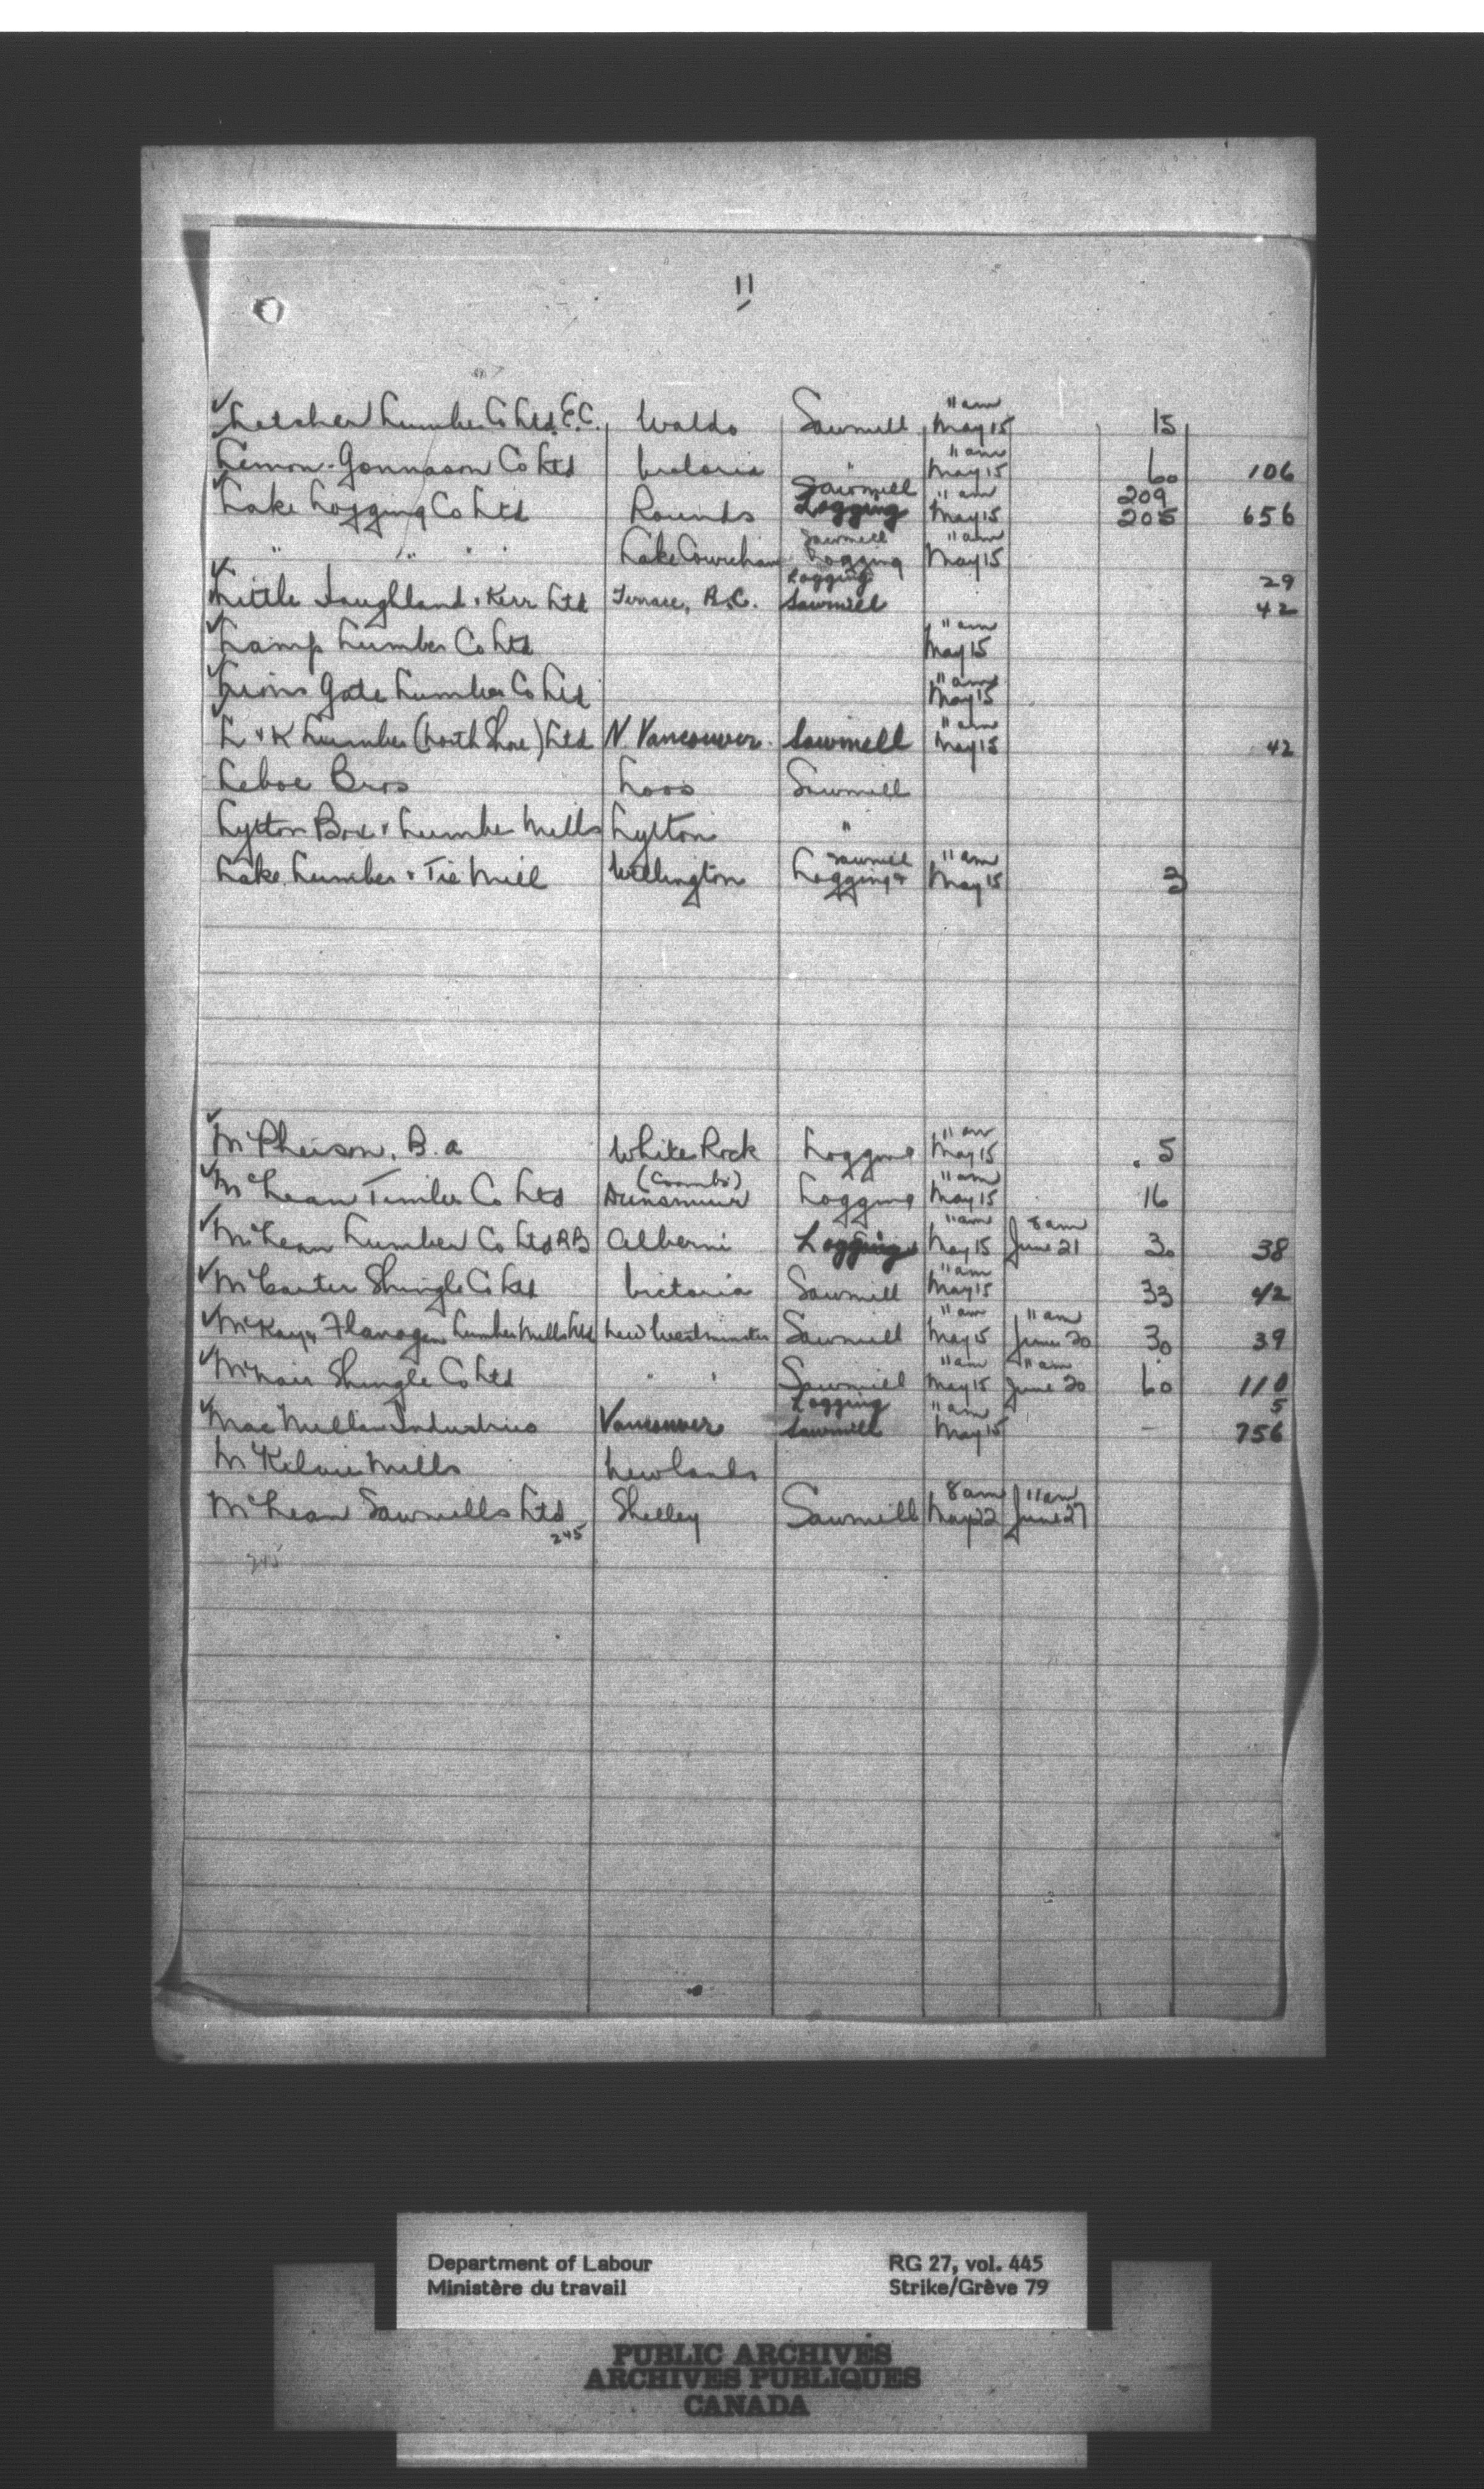 11
✓ Letcher Lumber Co Ltd. E.C. Waldo Sawmill 11 am May 15 15
Lemon-Gonnason Co Ltd Victoria " 11 am May 15 60 106
✓ Lake Logging Co Ltd Rounds Sawmill Logging 11 am May 15 209 205 656
" " " " Lake Cowichan Sawmill Logging 11 am May 15
✓ Little Haughland & Kerr Ltd Terrace, B.C. Logging Sawmill 29 42
✓ Lamp Lumber Co Ltd 11 am May 15
✓ Lions Gate Lumber Co Ltd 11 am May 15
✓ L & K Lumber (North Shore) Ltd N. Vancouver. Sawmill 11 am May 15 42
Leboe Bros Loos Sawmill
Lytton Box & Lumber Mills Lytton "
Lake Lumber & Tie Mill Wellington Sawmill Logging & 11 am May 15 3
✓ McPherson, B. A White Rock Logging 11 am May 15 5
✓ McLean Timber Co Ltd (Coombs) Dunsmuir Logging 11 am May 15 16
✓ McLean Lumber Co Ltd RB Alberni Logging 11 am May 15 8 am June 21 30 38
✓ McCarter Shingle Co Ltd Victoria Sawmill 11 am May 15 33 42
✓ McKay & Flanagan Lumber Mills Ltd New Westminster Sawmill 11 am May 15 11 am June 20 30 39
✓ McNair Shingle Co Ltd " " Sawmill 11 am May 15 11 am June 20 60 110
✓ MacMillan Industries Vancouver Logging Sawmill 11 am May 15 — 5 756
McKelvie Mills Newlands
McLean Sawmills Ltd Shelley Sawmill 8 am May 22 11 am June 27
245
245
Department of Labour
Ministère du travail
RG 27, vol. 445
Strike/Grève 79
PUBLIC ARCHIVES
ARCHIVES PUBLIQUES
CANADA